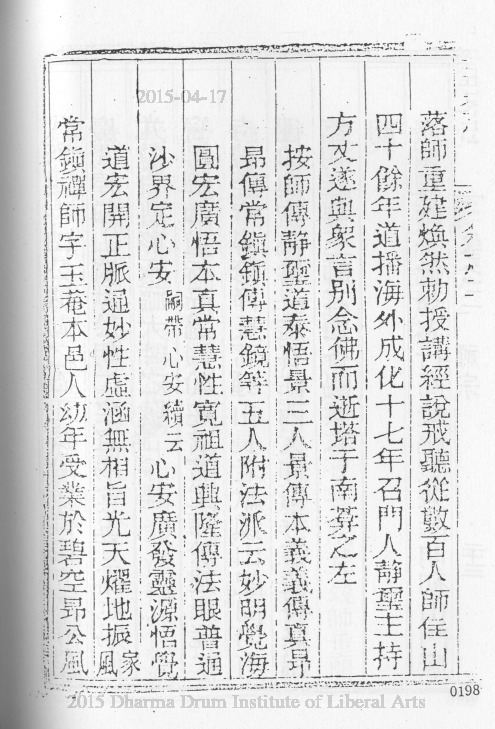 落師重建煥然勅授講經說戒聽從數百人師住山
四十餘年道播海外成化十七年召門人靜璽主持
方丈遂與衆言別念佛而逝塔于南塋之左
按師傳靜璽道泰悟景三人景傳本義義傳真昂
昂傳常鎮鎮傳慧鏡等五人附法派云妙明覺海
圓宏廣悟本真常慧性寬祖道興隆傳法眼普通
沙界定心安 嗣帶心安續云 心安廣發靈源悟覺
道宏開正脈通妙性虛涵無相旨光天耀地振家風
常鎮禪師字玉菴本邑人幼年受業於碧空昂公風
2015-04-17
0198
2015 Dharma Drum Institute of Liberal Arts